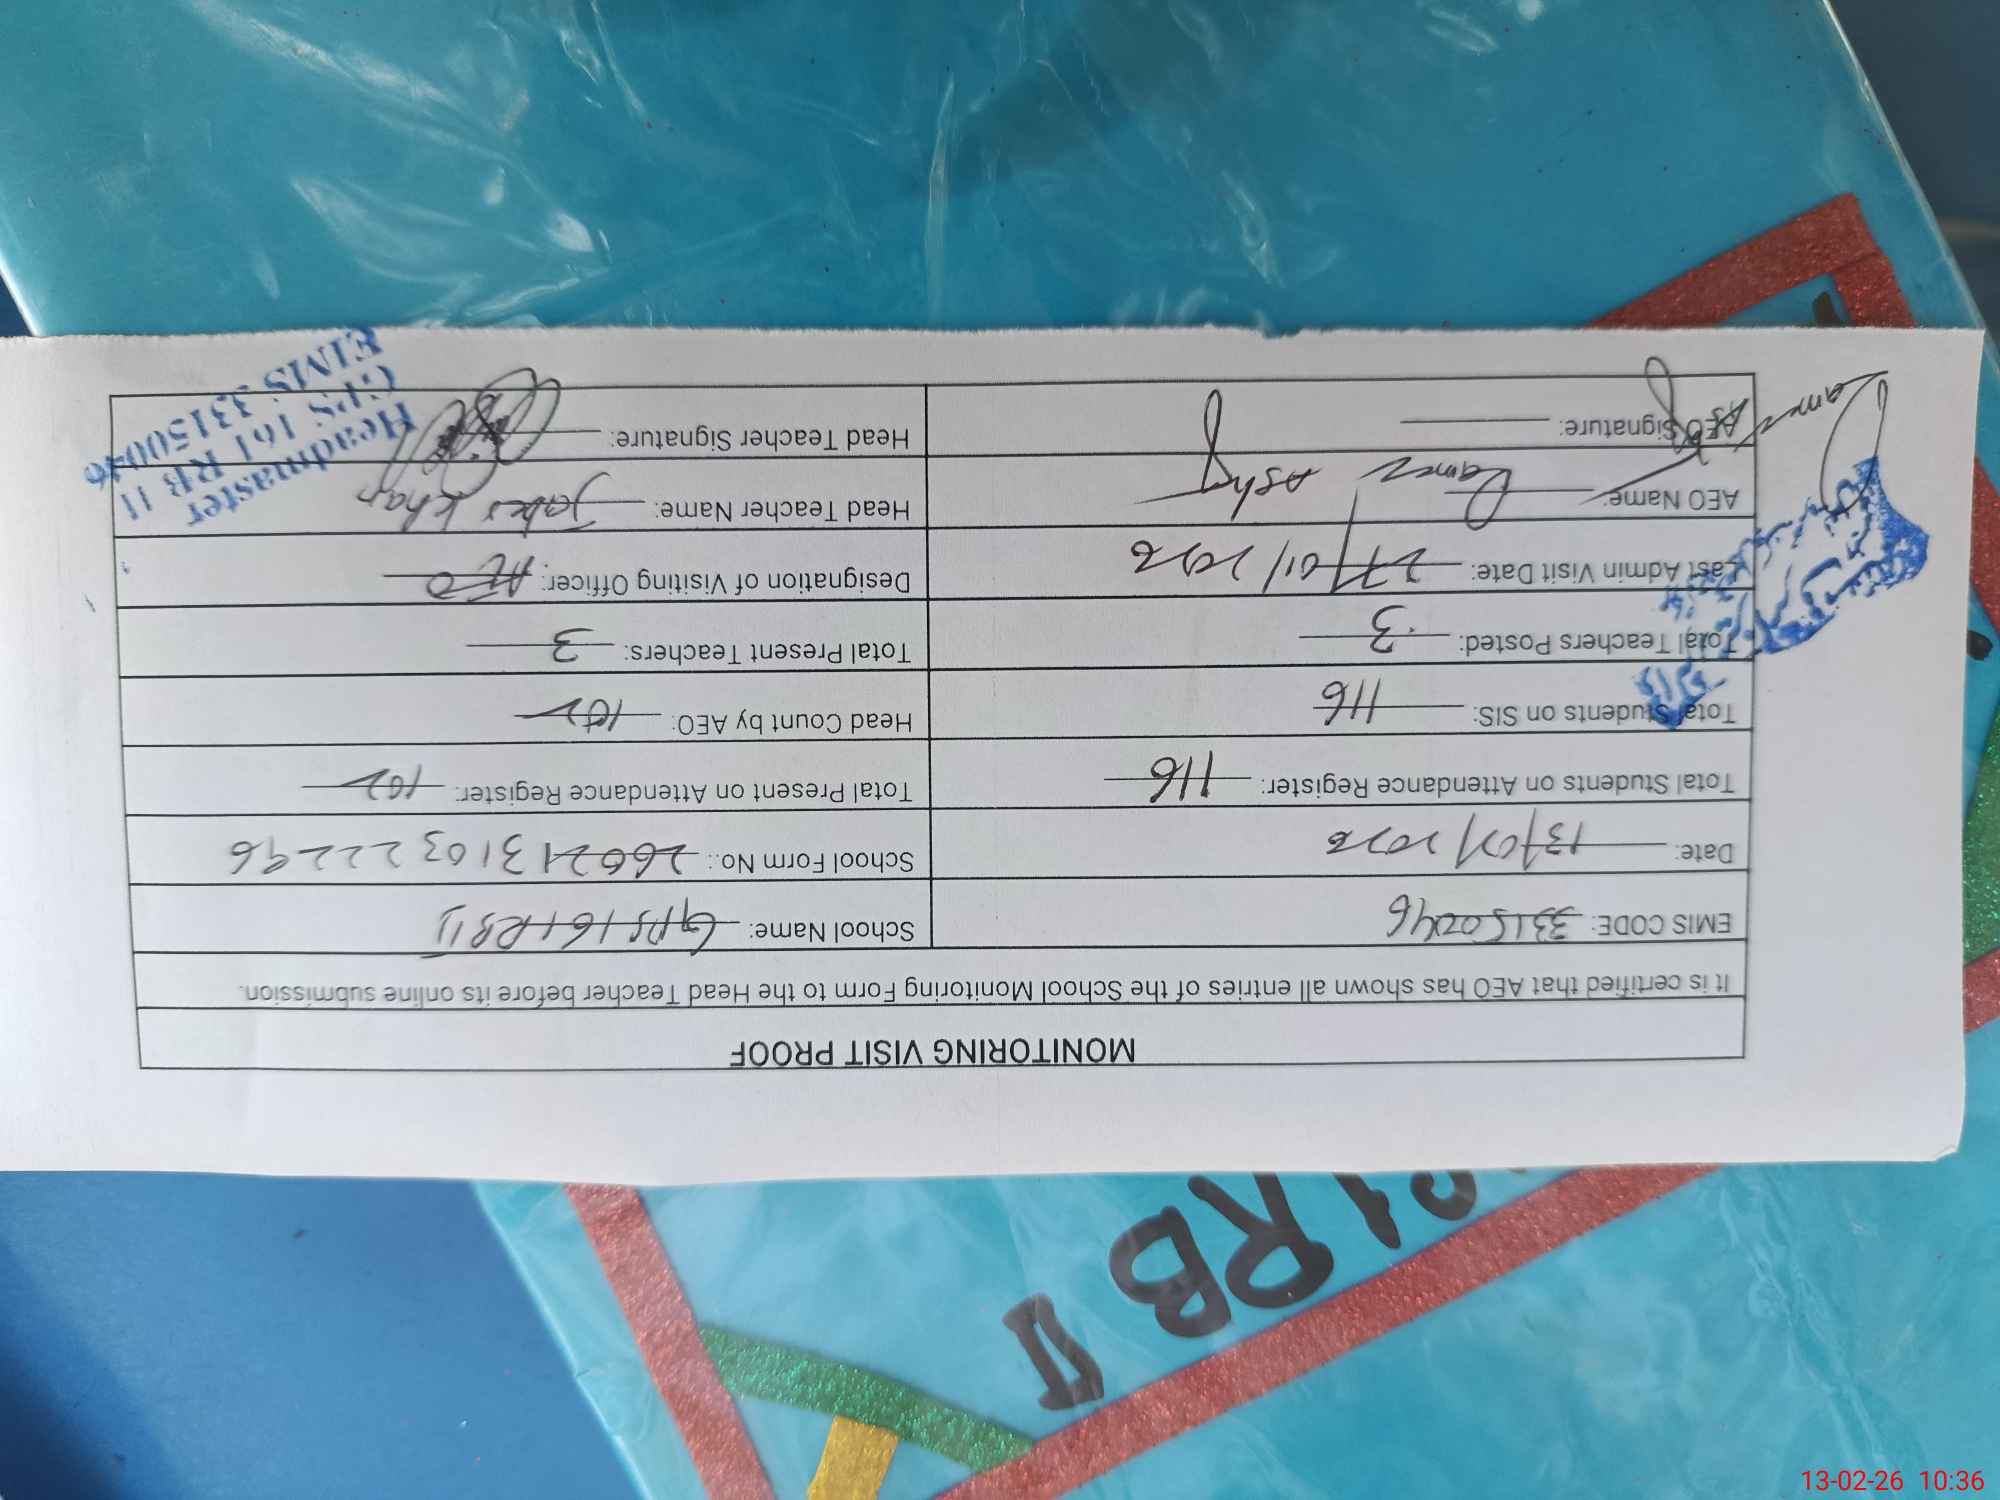 MONITORING VISIT PROOF
It is certified that AEO has shown all entries of the School Monitoring Form to the Head Teacher before its online submission.
EMIS CODE: 33150046 School Name: GPS 161 RB II
Date: 13/02/2026 School Form No.: 26021310322296
Total Students on Attendance Register: 116 Total Present on Attendance Register: 102
Total Students on SIS: 116 Head Count by AEO: 102
Total Teachers Posted: 3 Total Present Teachers: 3
Last Admin Visit Date: 27/01/2026 Designation of Visiting Officer: AEO
AEO Name: Head Teacher Name: Khan
AEO Signature: Head Teacher Signature:
Headmaster
GPS 161 RB II
EIMS 33150046
RB II
13-02-26 10:36